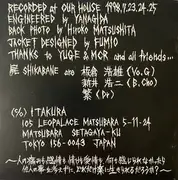 RECORDED at OUR HOUSE 1998,9,23.24.25
ENGINEERED by YANAGIDA
BACK PHOTO by HIROKO MATSUSHITA
JACKET DESIGNED by FUMIO
THANKS to YUGE & MCR and all friends...
屍 SHIKABANE are 板倉 浩雄 (Vo.G)
新井 浩二 (B.Cho)
繁 (Dr)
(c/o) ITAKURA
105 LEOPALACE MATSUBARA 5-11-24
MATSUBARA SETAGAYA-KU
TOKYO 156-0043 JAPAN